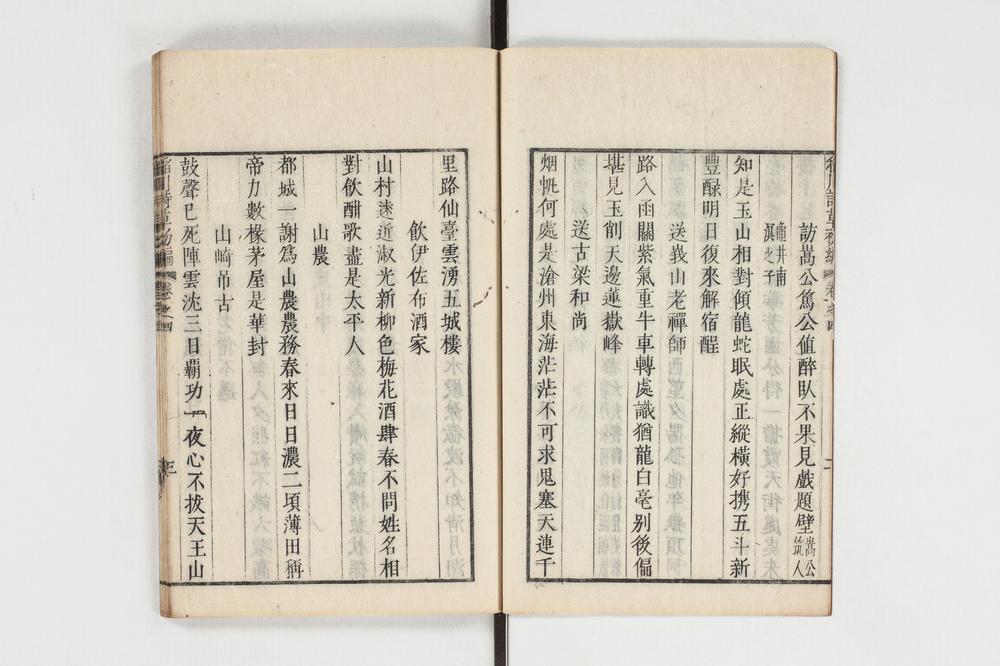 訪嵩公篤公値醉臥不果見戲題壁嵩公筑人
龜井南冥之子
知是玉山相對傾龍蛇眠處正縱橫好携五斗新
豐醁明日復來解宿酲
送峩山老禪師
路入函關紫氣重牛車轉處識猶龍白毫别後偏
堪見玉削天邊蓮嶽峰
送古梁和尚
烟帆何處是滄州東海茫茫不可求鬼塞天連千
里路仙臺雲湧五城樓
飲伊佐布酒家
山村遠近淑光新柳色梅花酒肆春不問姓名相
對飲酣歌盡是太平人
山農
都城一謝爲山農農務春來日日濃二頃薄田稱
帝力數椽茅屋是華封
山崎吊古
鼓聲已死陣雲沈三日覇功一夜心不拔天王山
卷之四
三